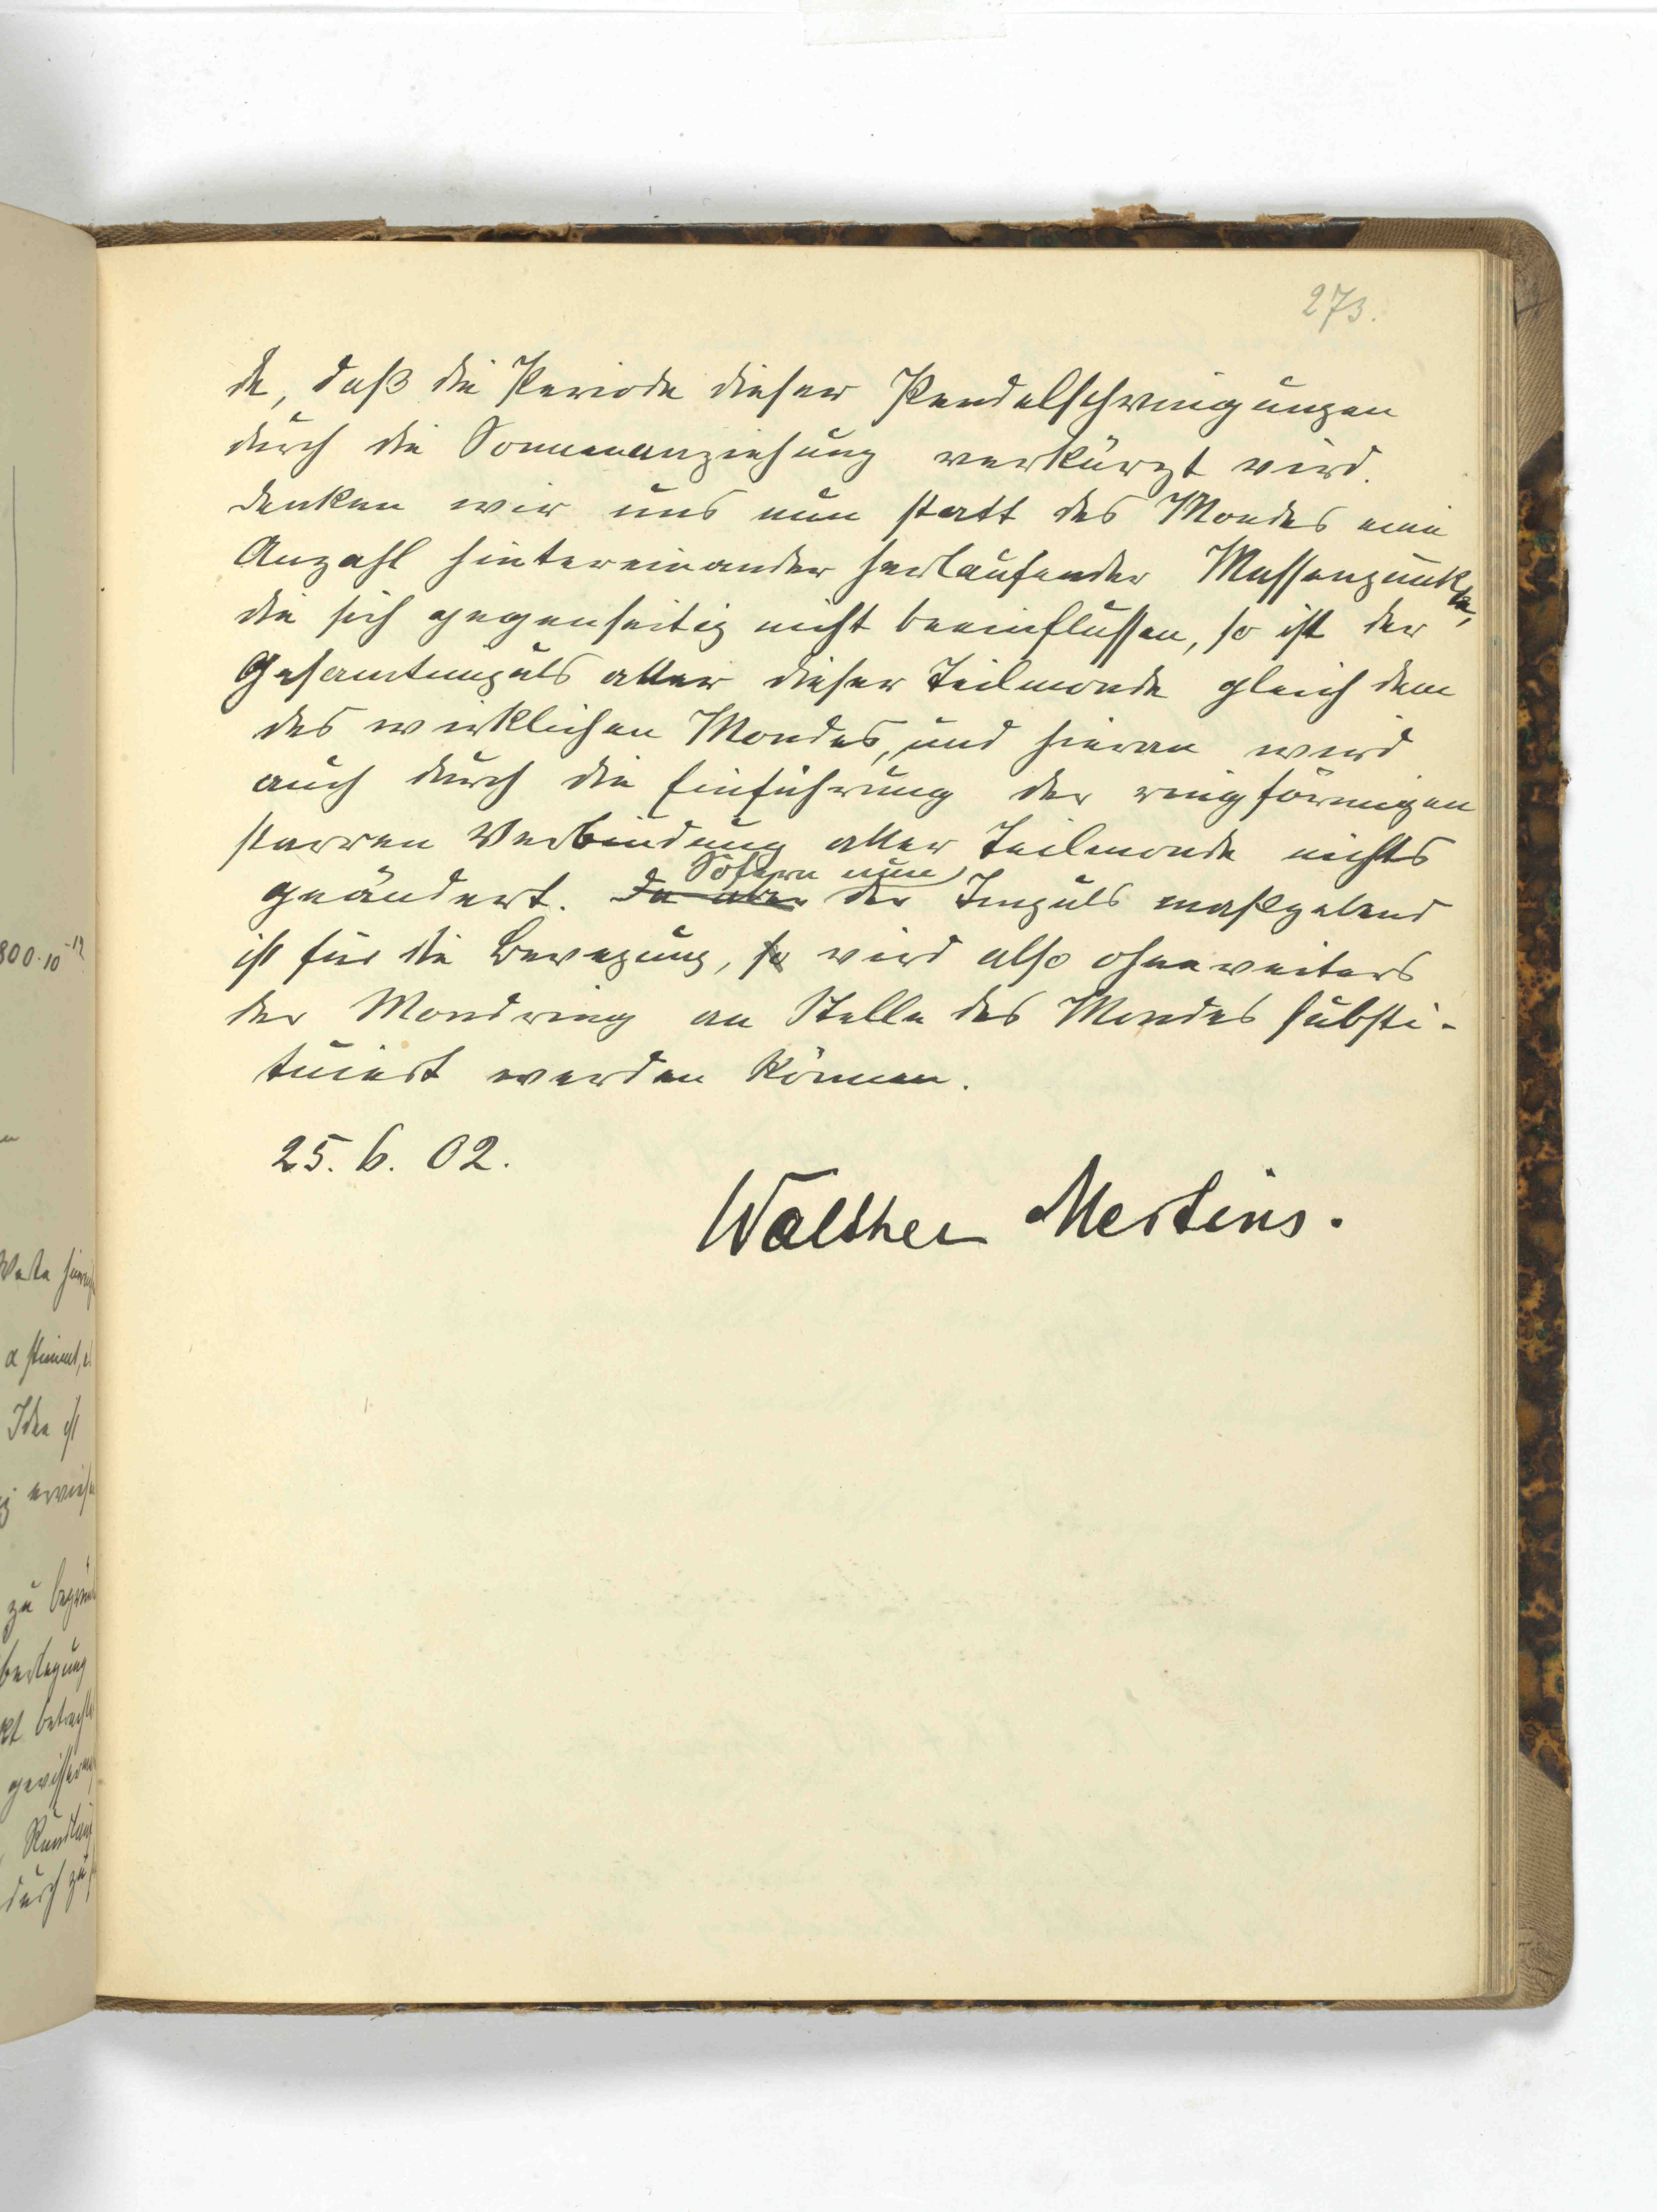 273.
de, daß die Periode dieser Pendelschwingungen
durch die Sonnenanziehung verkürzt wird.
denken wir uns nun statt des Mondes eine
Anzahl hintereinander herlaufender Massenpunkte,
die sich gegenseitig nicht beeinflussen, so ist der
Gesamtimpuls aller dieser Teilmonde gleich dem
des wirklichen Mondes, und hieran wird
auch durch die Einführung der ringförmigen
starren Verbindung aller Teilmonde nichts
Sofern nun
geändert. Da aber der Impuls maßgebend
ist für die Bewegung, so wird also ohneweiters
der Mondring an Stelle des Mondes substi-
tuiert werden können.
25. 6. 02.
Walther Mertins.
800·10
zu
Idee ist
durch zu